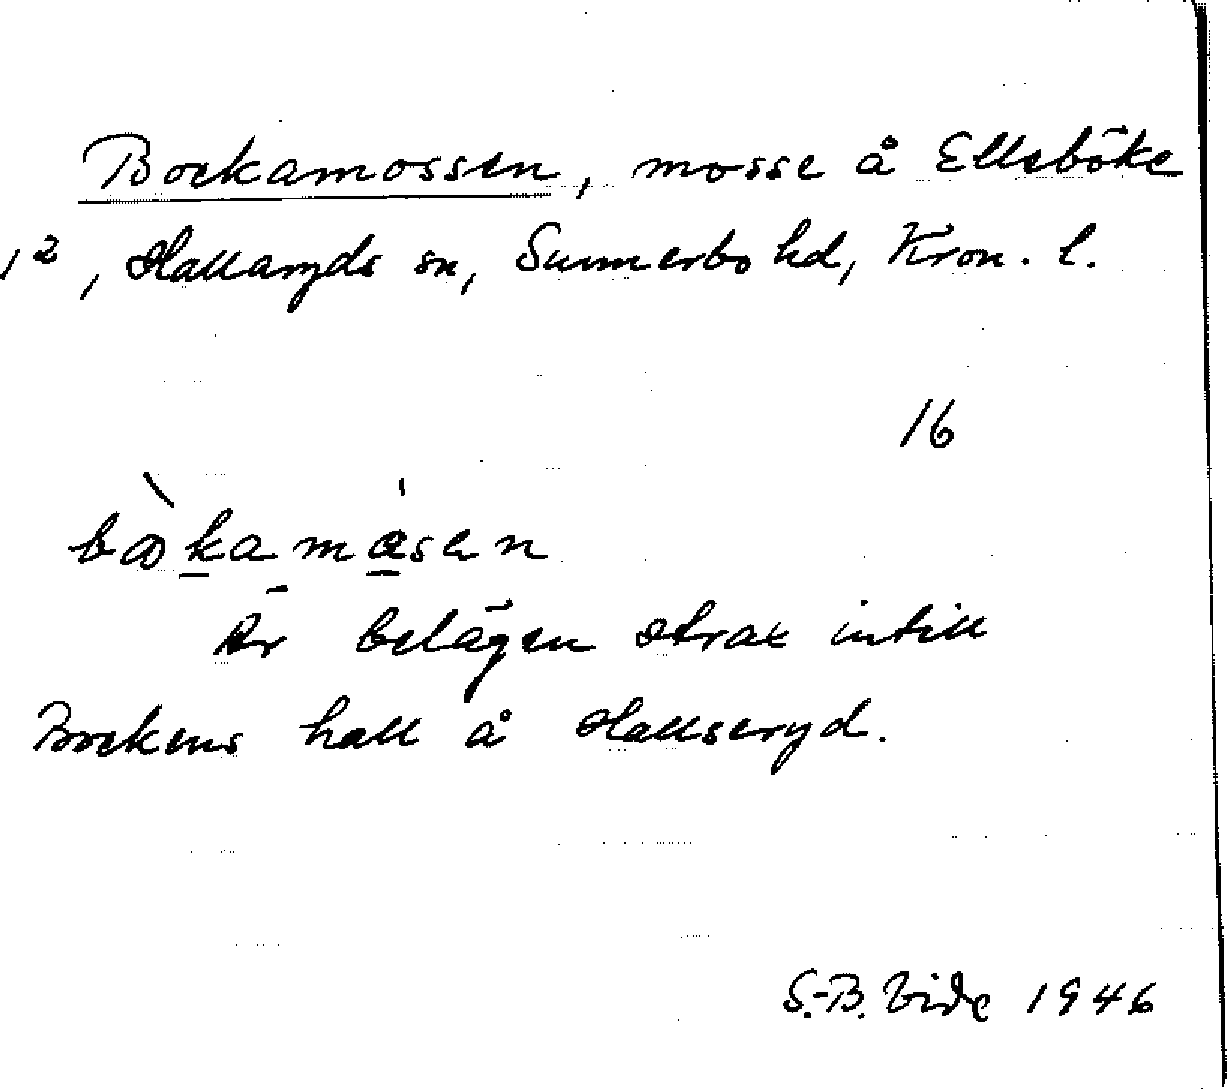 Bockamossen, mosse å Ellsböke
1², Hallaryds sn, Sunnerbo hd, Kron. l.
16
Är belägen strax intill
Bockens hall å Hallseryd.
S.-B. Vide 1946